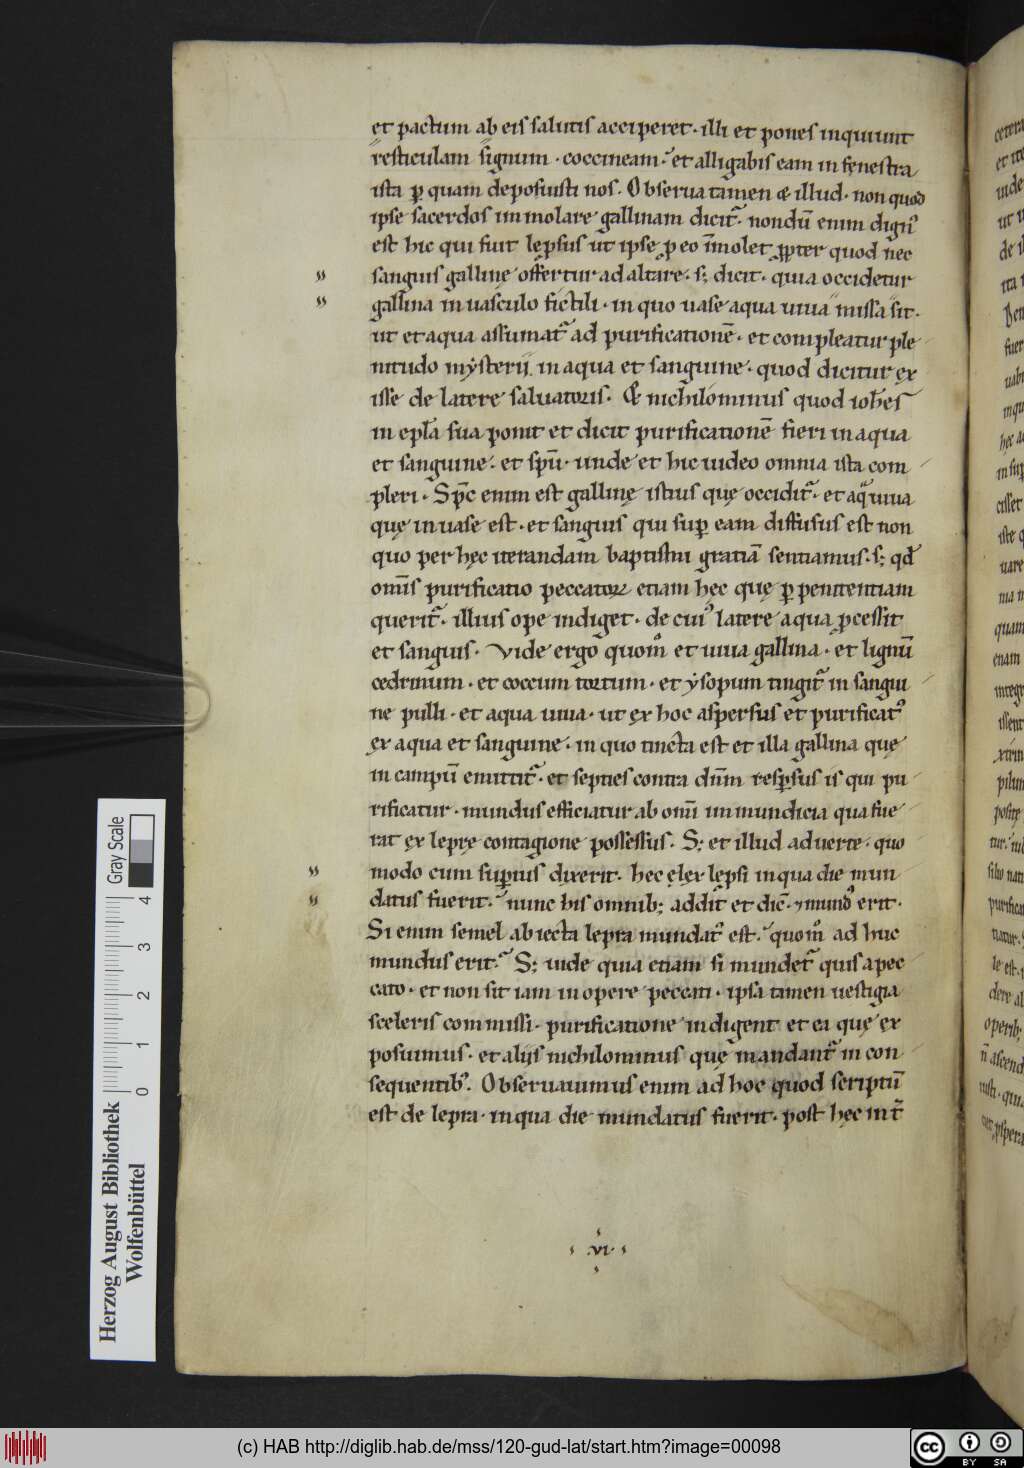 et pactum ab eis salutis acciperet· illi et pones inquiunt
resticulam signum· coccineam· et alligabis eam in fenestra
ista p̱ quam deposuisti nos. Obserua tamen & illud· non quod
ipse sacerdos immolare gallinam dicit̃· nondū enim dignꝰ
est hic qui fuit lępsus ut ipse p eo īmolet ꝓpter quod nec
sanguis gallinę offertur ad altare· s; dicit· quia occidetur
gallina in uasculo fictili· in quo uase aqua uiua missa sit·
ut et aqua assumat̃ ad purificationē· et compleatur ple
nitudo mẏsterij in aqua et sanguine· quod dicitur ex
isse de latere saluatoris· & nichilominus quod ioħes
in ep̄la sua ponit et dicit purificationē fieri in aqua
et sanguine· et sp̄ū· unde et hic uideo omnia ista com
pleri· Sp̄c enim est gallinę istius quę occidit̃· et aq̃ uiua
quę in uase est· et sanguis qui sup̱ eam diffusus est non
quo per hęc iterandam baptismi gratiā sentiamus· s; qđ
om̄is purificatio peccatoꝝ etiam hęc quę p̱ penitentiam
querit̃· illius ope indiget· de cuiꝰ latere aqua ꝓcessit
et sanguis· Vide ergo quom̊ et uiua gallina· et lignū
cedrinum· et coccum tortum· et ẏsopum tingit̃ in sangui
ne pulli· et aqua uiua· ut ex hoc aspersus et purificatꝰ
ex aqua et sanguine· in quo tincta est et illa gallina quę
in campū emittit̃· et septies contra dn̄m resp̱sus is qui pu
rificatur· mundus efficiatur ab om̄i immundicia qua fue
rat ex leprę contagione possessus· S; et illud aduerte· quo
modo cum sup̱ius dixerit· hec ę lex lepsi in qua die mun
datus fuerit· nunc his omnib; addit et dic̄· ⁊ mundꝰ erit·
Si enim semel abiecta lepra mundatꝰ est· quom̊ ad huc
mundus erit· S; uide quia etiam si mundet̃ quis a pec
cato· et non sit iam in opere peccati· ipsa tamen uestigia
sceleris commissi· purificatione indigent et ea quę ex
posuimus· et alijs nichilominus quę mandant̃ in con
sequentibꝰ. Obseruauimus enim ad hoc quod scriptū
est de lepra· in qua die mundatus fuerit· post hęc int̃
·vi·
Herzog August Bibliothek
Wolfenbüttel
Gray Scale
0 1 2 3 4
(c) HAB http://diglib.hab.de/mss/120-gud-lat/start.htm?image=00098
cc BY SA